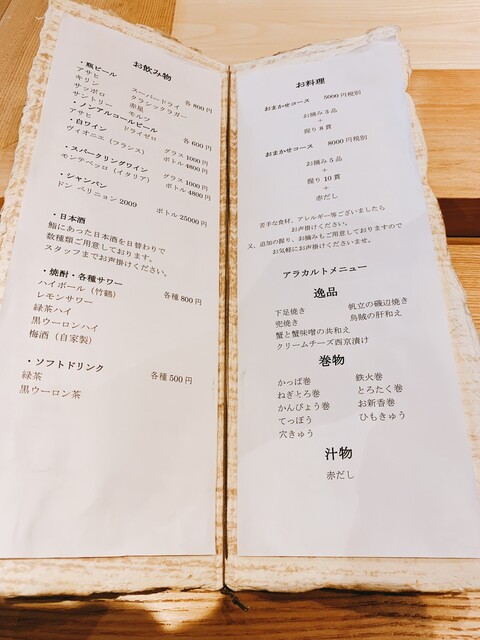 お飲み物
・瓶ビール 各800円
アサヒ スーパードライ
キリン クラシックラガー
サッポロ 赤星
サントリー モルツ
・ノンアルコールビール 各600円
アサヒ ドライゼロ
・白ワイン グラス1000円
ヴィオニエ（フランス） ボトル4800円
・スパークリングワイン グラス1000円
モンテベッロ（イタリア） ボトル4800円
・シャンパン
ドン ペリニョン2009 ボトル25000円
・日本酒
鮨にあった日本酒を日替わりで
数種類ご用意しております。
スタッフまでお声掛けください。
・焼酎・各種サワー 各種800円
ハイボール（竹鶴）
レモンサワー
緑茶ハイ
黒ウーロンハイ
梅酒（自家製）
・ソフトドリンク 各種500円
緑茶
黒ウーロン茶
お料理
おまかせコース 5000円税別
お摘み3品
+
握り8貫
おまかせコース 8000円税別
お摘み5品
+
握り10貫
+
赤だし
苦手な食材、アレルギー等ございましたら
お声掛けください。
又、追加の握り、お摘みもご用意しておりますので
お気軽にお声掛けくださいませ。
アラカルトメニュー
逸品
下足焼き 帆立の磯辺焼き
兜焼き 烏賊の肝和え
蟹と蟹味噌の共和え
クリームチーズ西京漬け
巻物
かっぱ巻 鉄火巻
ねぎとろ巻 とろたく巻
かんぴょう巻 お新香巻
てっぽう ひもきゅう
穴きゅう
汁物
赤だし